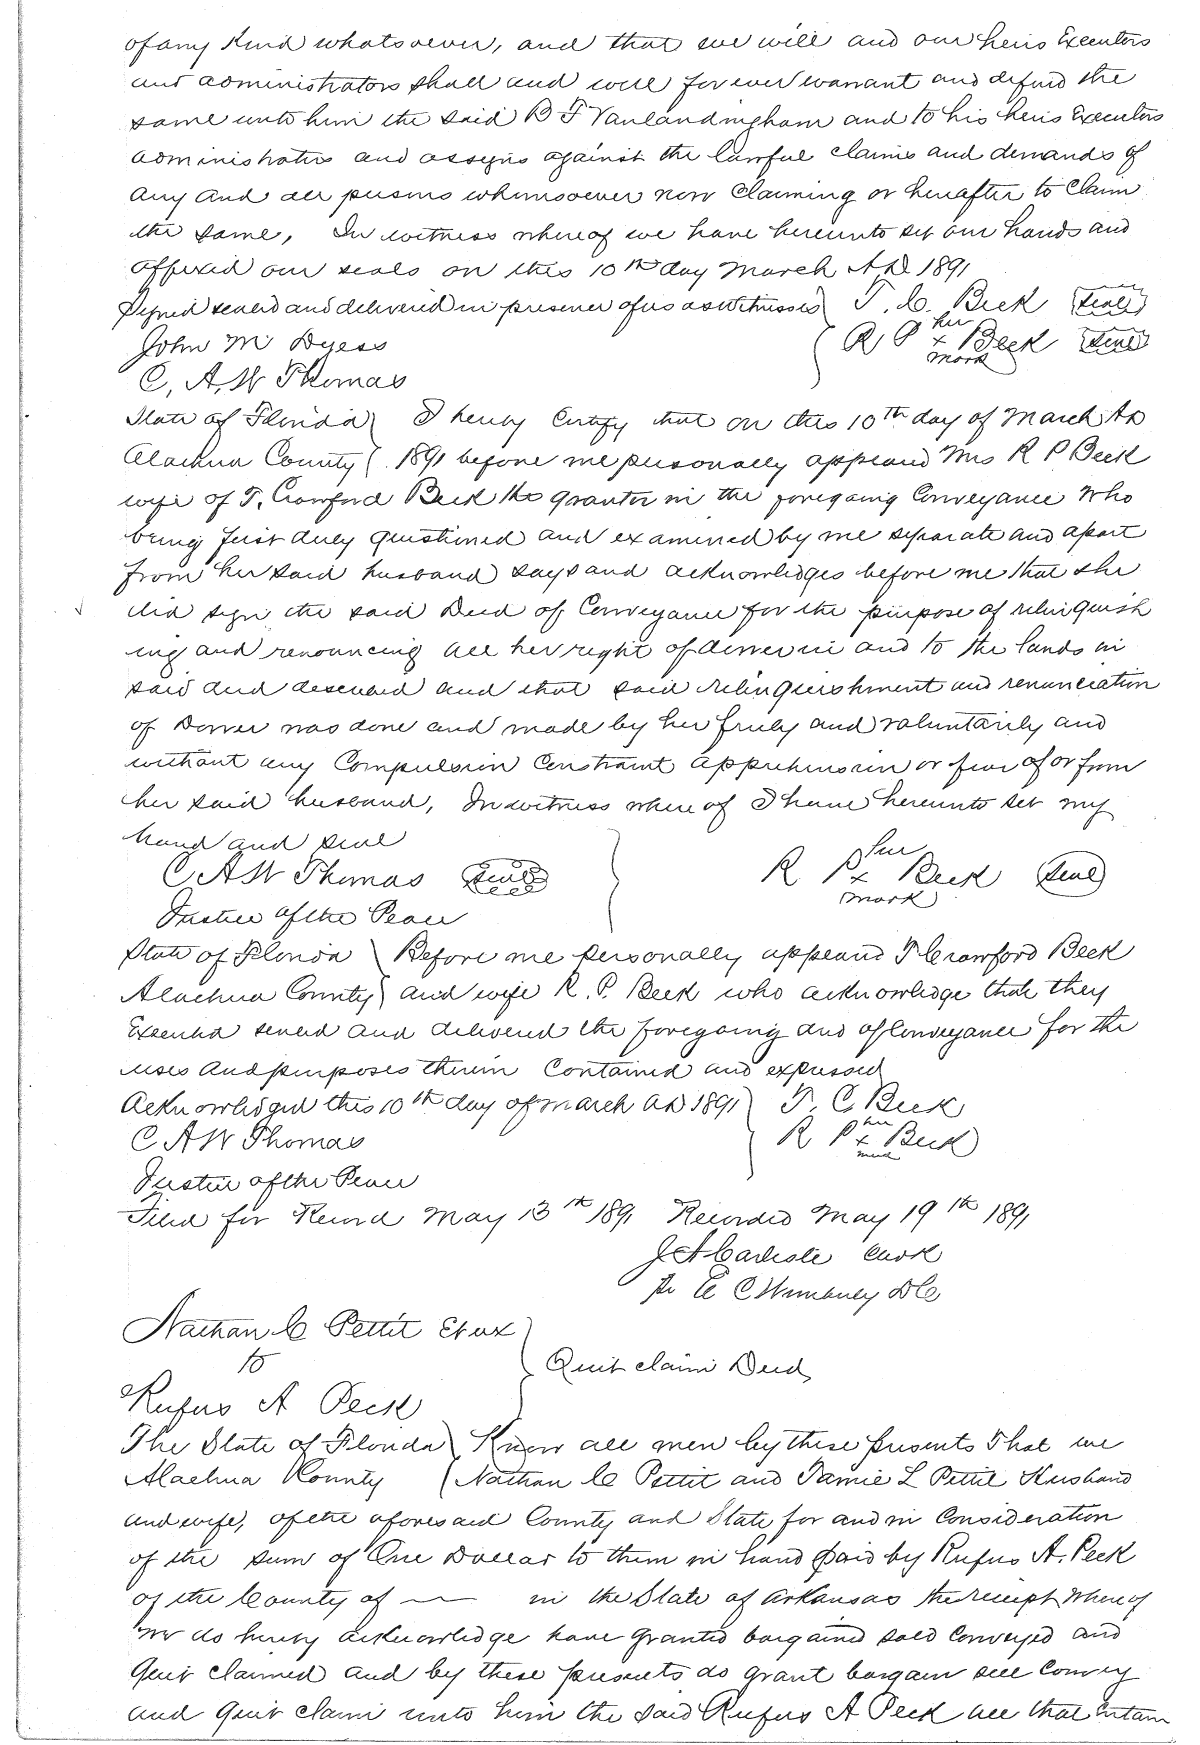 of any Kind whatsoever, and that we will and our heirs Executors
and administrators shall and will forever warrant and defend the
same unto him the said B F Vanlandingham and to his heirs Executors
administrators and assigns against the lawful claims and demands of
any and all persons whomsoever now Claiming or hereafter to Claim
the same, In witness whereof we have hereunto set our hands and
affixed our seals on this 10th day March AD 1891
Signed sealed and delivered in presence of us as witnesses T. C. Beck (Seal)
John M Dyess R P her x mark Beck (Seal)
C. A. W Thomas
State of Florida I hereby Certify that on this 10th day of March AD
Alachua County 1891 before me personally appeared Mrs R P Beck
wife of T. Crawford Beck the grantor in the foregoing Conveyance Who
being first duly questioned and examined by me separate and apart
from her said husband says and acknowledges before me that she
did sign the said Deed of Conveyance for the purpose of relinquish
ing and renouncing all her right of dower in and to the lands in
said deed described and that said relinquishment and renunciation
of Dower was done and made by her freely and voluntarily and
without any Compulsion Constraint apprehension or fear of or from
her said husband, In witness where of I have hereunto set my
hand and seal
C A W Thomas (Seal) R P her x mark Beck (Seal)
Justice of the Peace
State of Florida Before me personally appeared T Crawford Beck
Alachua County and wife R. P. Beck who acknowledge that they
Executed sealed and delivered the foregoing deed of Conveyance for the
uses and purposes therein Contained and expressed
Acknowledged this 10th day of March AD 1891 T. C. Beck
C A W Thomas R P her x mark Beck
Justice of the Peace
Filed for Record May 13th 1891 Recorded May 19th 1891
J A Carlisle Clerk
Pr E C DC
Nathan C Pettit Et ux
to
Quit claim Deed,
Rufus A Peck
The State of Florida Know all men by these presents That we
Alachua County Nathan C Pettit and Jamie L Pettit Husband
and wife, of the aforesaid County and State for and in Consideration
of the sum of One Dollar to them in hand paid by Rufus A. Peck
of the County of — in the State of Arkansas the receipt where of
we do hereby acknowledge have granted bargained sold Conveyed and
Quit claimed and by these presents do grant bargain sell Convey
and Quit claim unto him the said Rufus A Peck all that Certain